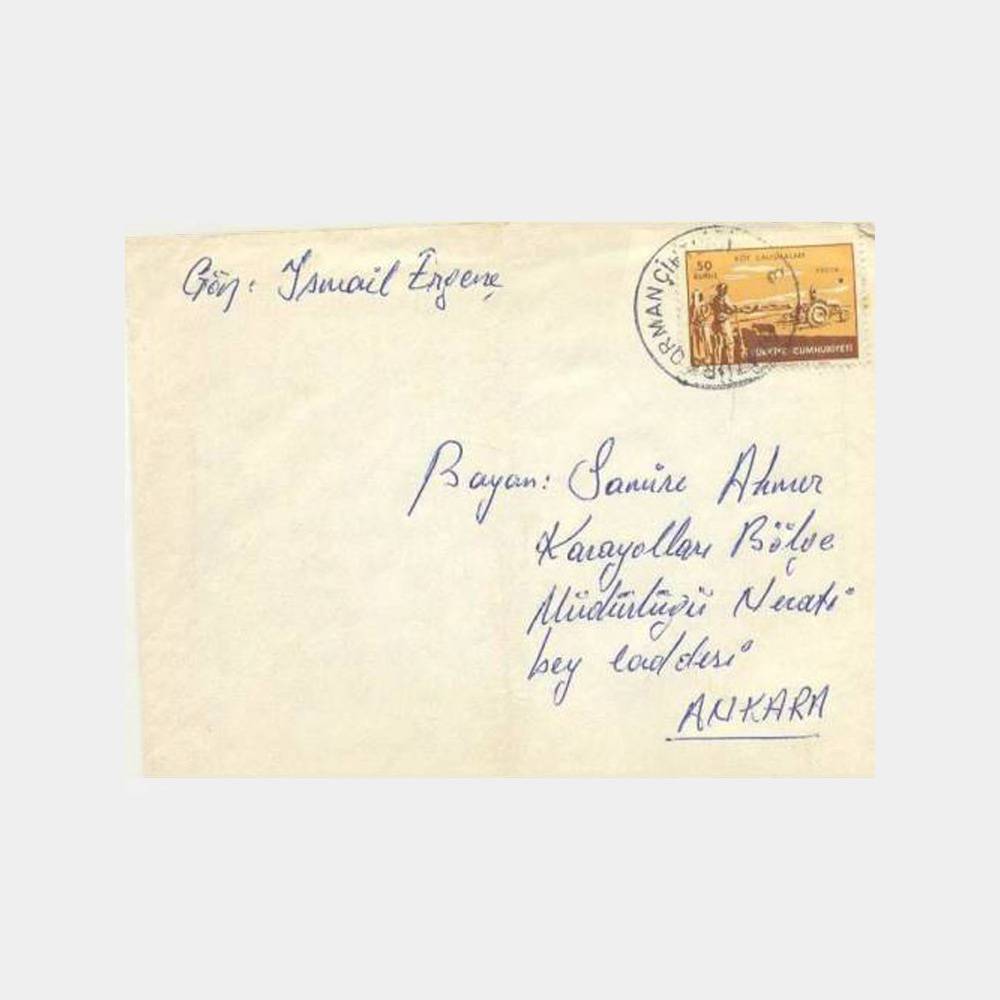 Gön: Ismail Ergenç
50
KURUŞ
KÖY CALIŞMALARI
TÜRKİYE CUMHURİYETİ
ORMANÇİ
Bayan: Samire Ahmer
Karayolları Bölge
Müdürlüğü Necati
bey caddesi
ANKARA